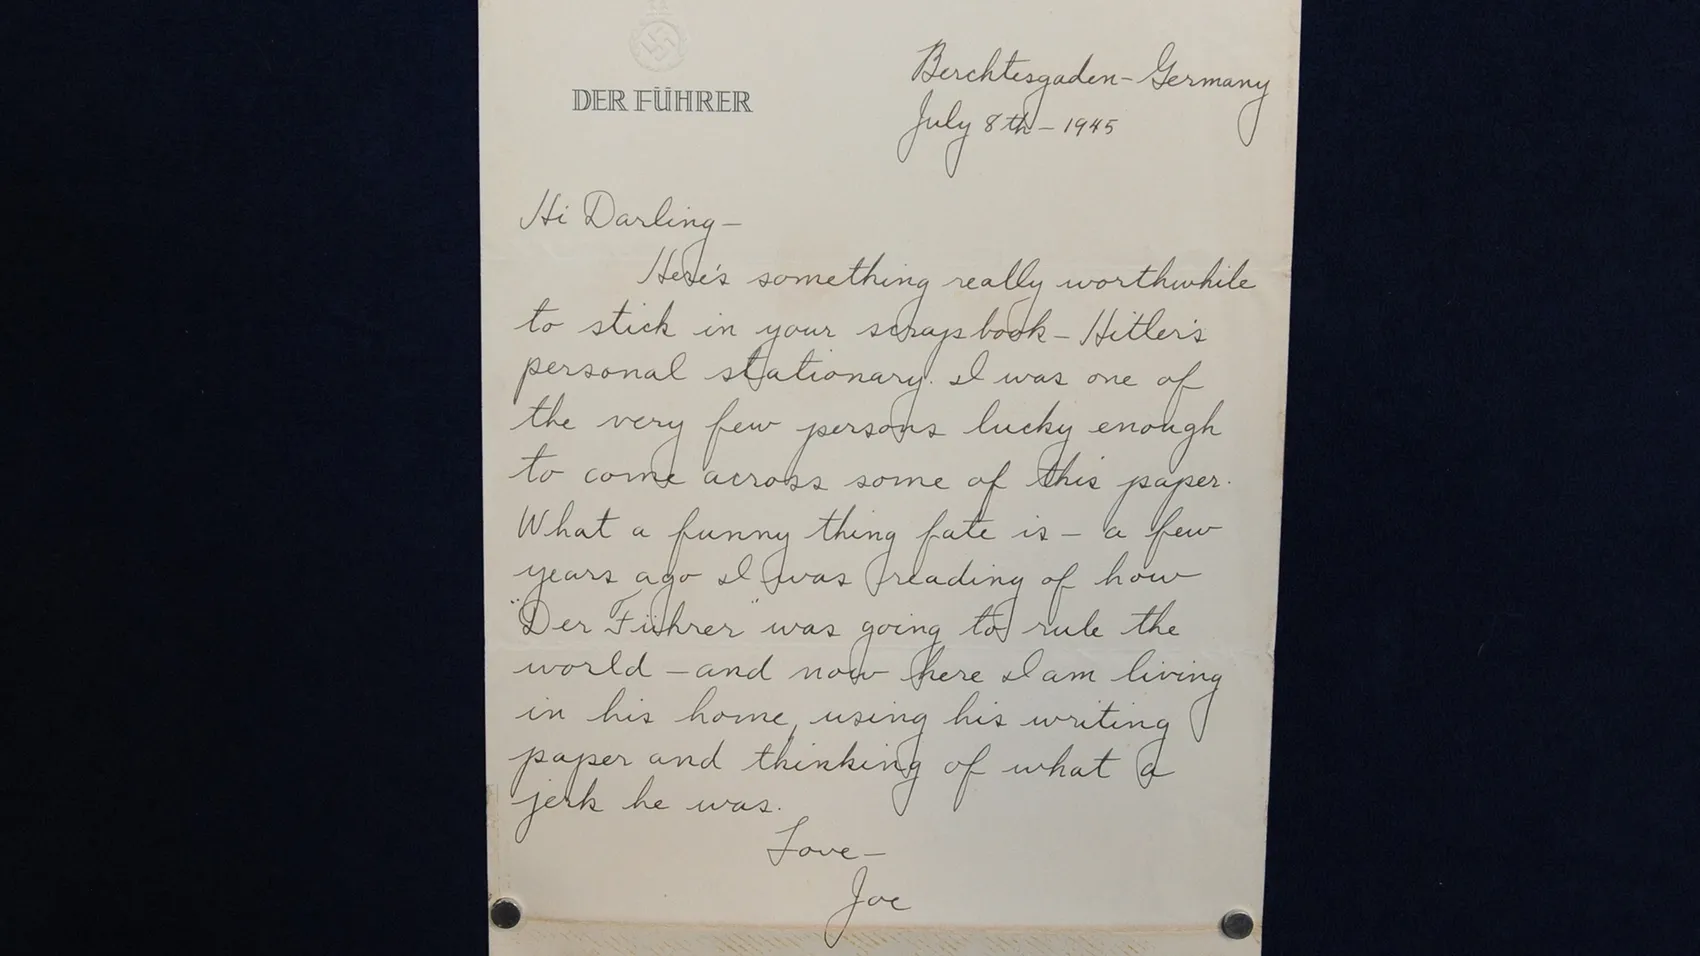 DER FÜHRER
Berchtesgaden - Germany
July 8th - 1945
Hi Darling -
Here's something really worthwhile
to stick in your scrapbook - Hitler's
personal stationary. I was one of
the very few persons lucky enough
to come across some of this paper.
What a funny thing fate is - a few
years ago I was reading of how
"Der Führer" was going to rule the
world - and now here I am living
in his home, using his writing
paper and thinking of what a
jerk he was.
Love -
Joe